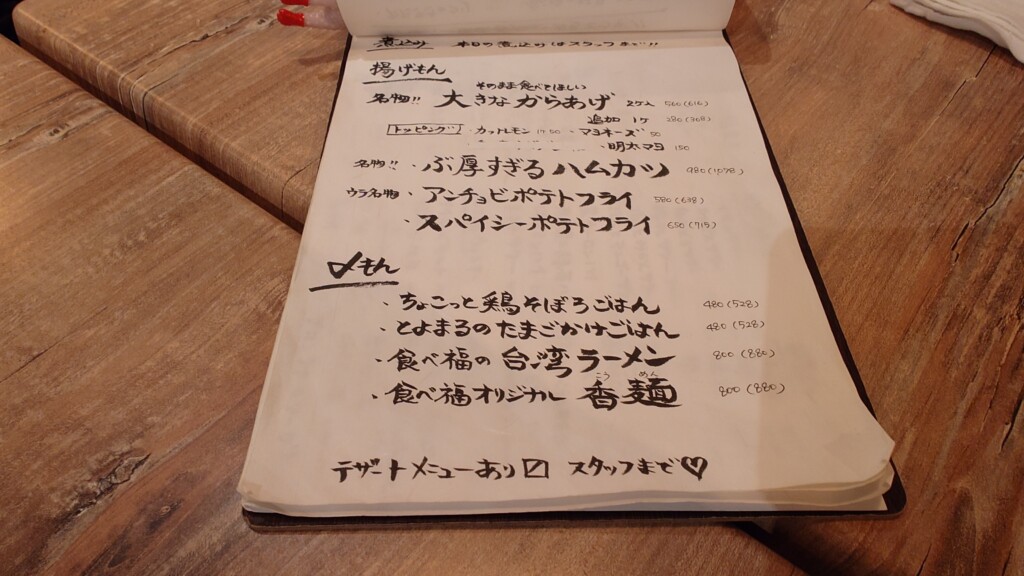 煮込み 本日の煮込みはスタッフまで!!
揚げもん
そのまま食べてほしい
名物!! 大きなからあげ 2ケ入 560(616)
追加 1ケ 280(308)
トッピング ・カットレモン 1ケ50 ・マヨネーズ 50
・明太マヨ 150
名物!! ・ぶ厚すぎるハムカツ 980(1078)
ウラ名物 ・アンチョビポテトフライ 580(638)
・スパイシーポテトフライ 650(715)
〆もん
・ちょこっと鶏そぼろごはん 480(528)
・とよまるのたまごかけごはん 480(528)
・食べ福の台湾ラーメン 800(880)
こう めん
・食べ福オリジナル 香麺 800(880)
デザートメニューあり〼 スタッフまで♡